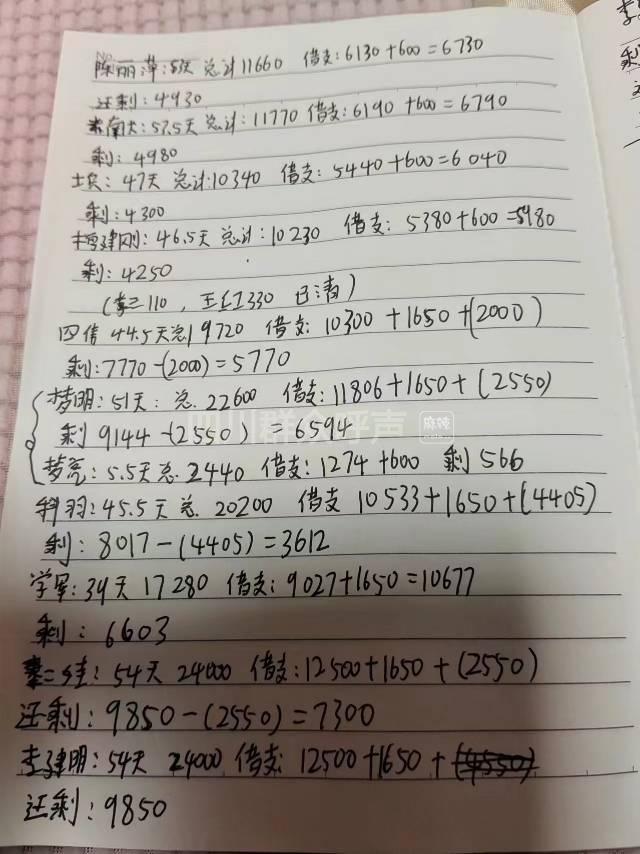 No.
陈丽萍: 天 总计11660 借支: 6130+600=6730
还剩: 4930
南夫: 57.5天 总计: 11770 借支: 6190 +600=6790
剩: 4980
: 47天 总计:10340 借支: 5440+600=6040
剩: 4300
建刚: 46.5天 总计:10230 借支: 5380+600=5980
剩: 4250
(二110, 王红330 已清)
四信 44.5天总19720 借支: 10300+1650+(2000)
剩:7770-(2000)=5770
梦明: 51天: 总. 22600 借支: 11806+1650+(2550)
剩 9144-(2550)=6594
梦亮: 5.5天总. 2440 借支: 1274+600 剩566
科羽: 45.5天总 20200 借支 10533+1650+(4405)
剩: 8017-(4405)=3612
学军: 39天 17280 借支: 9027+1650=10677
剩: 6603
二: 54天 24000 借支: 12500+1650+(2550)
还剩: 9850-(2550)=7300
李建明: 54天 24000 借支: 12500+1650+(4550)
还剩: 9850
四川群众呼声
麻辣